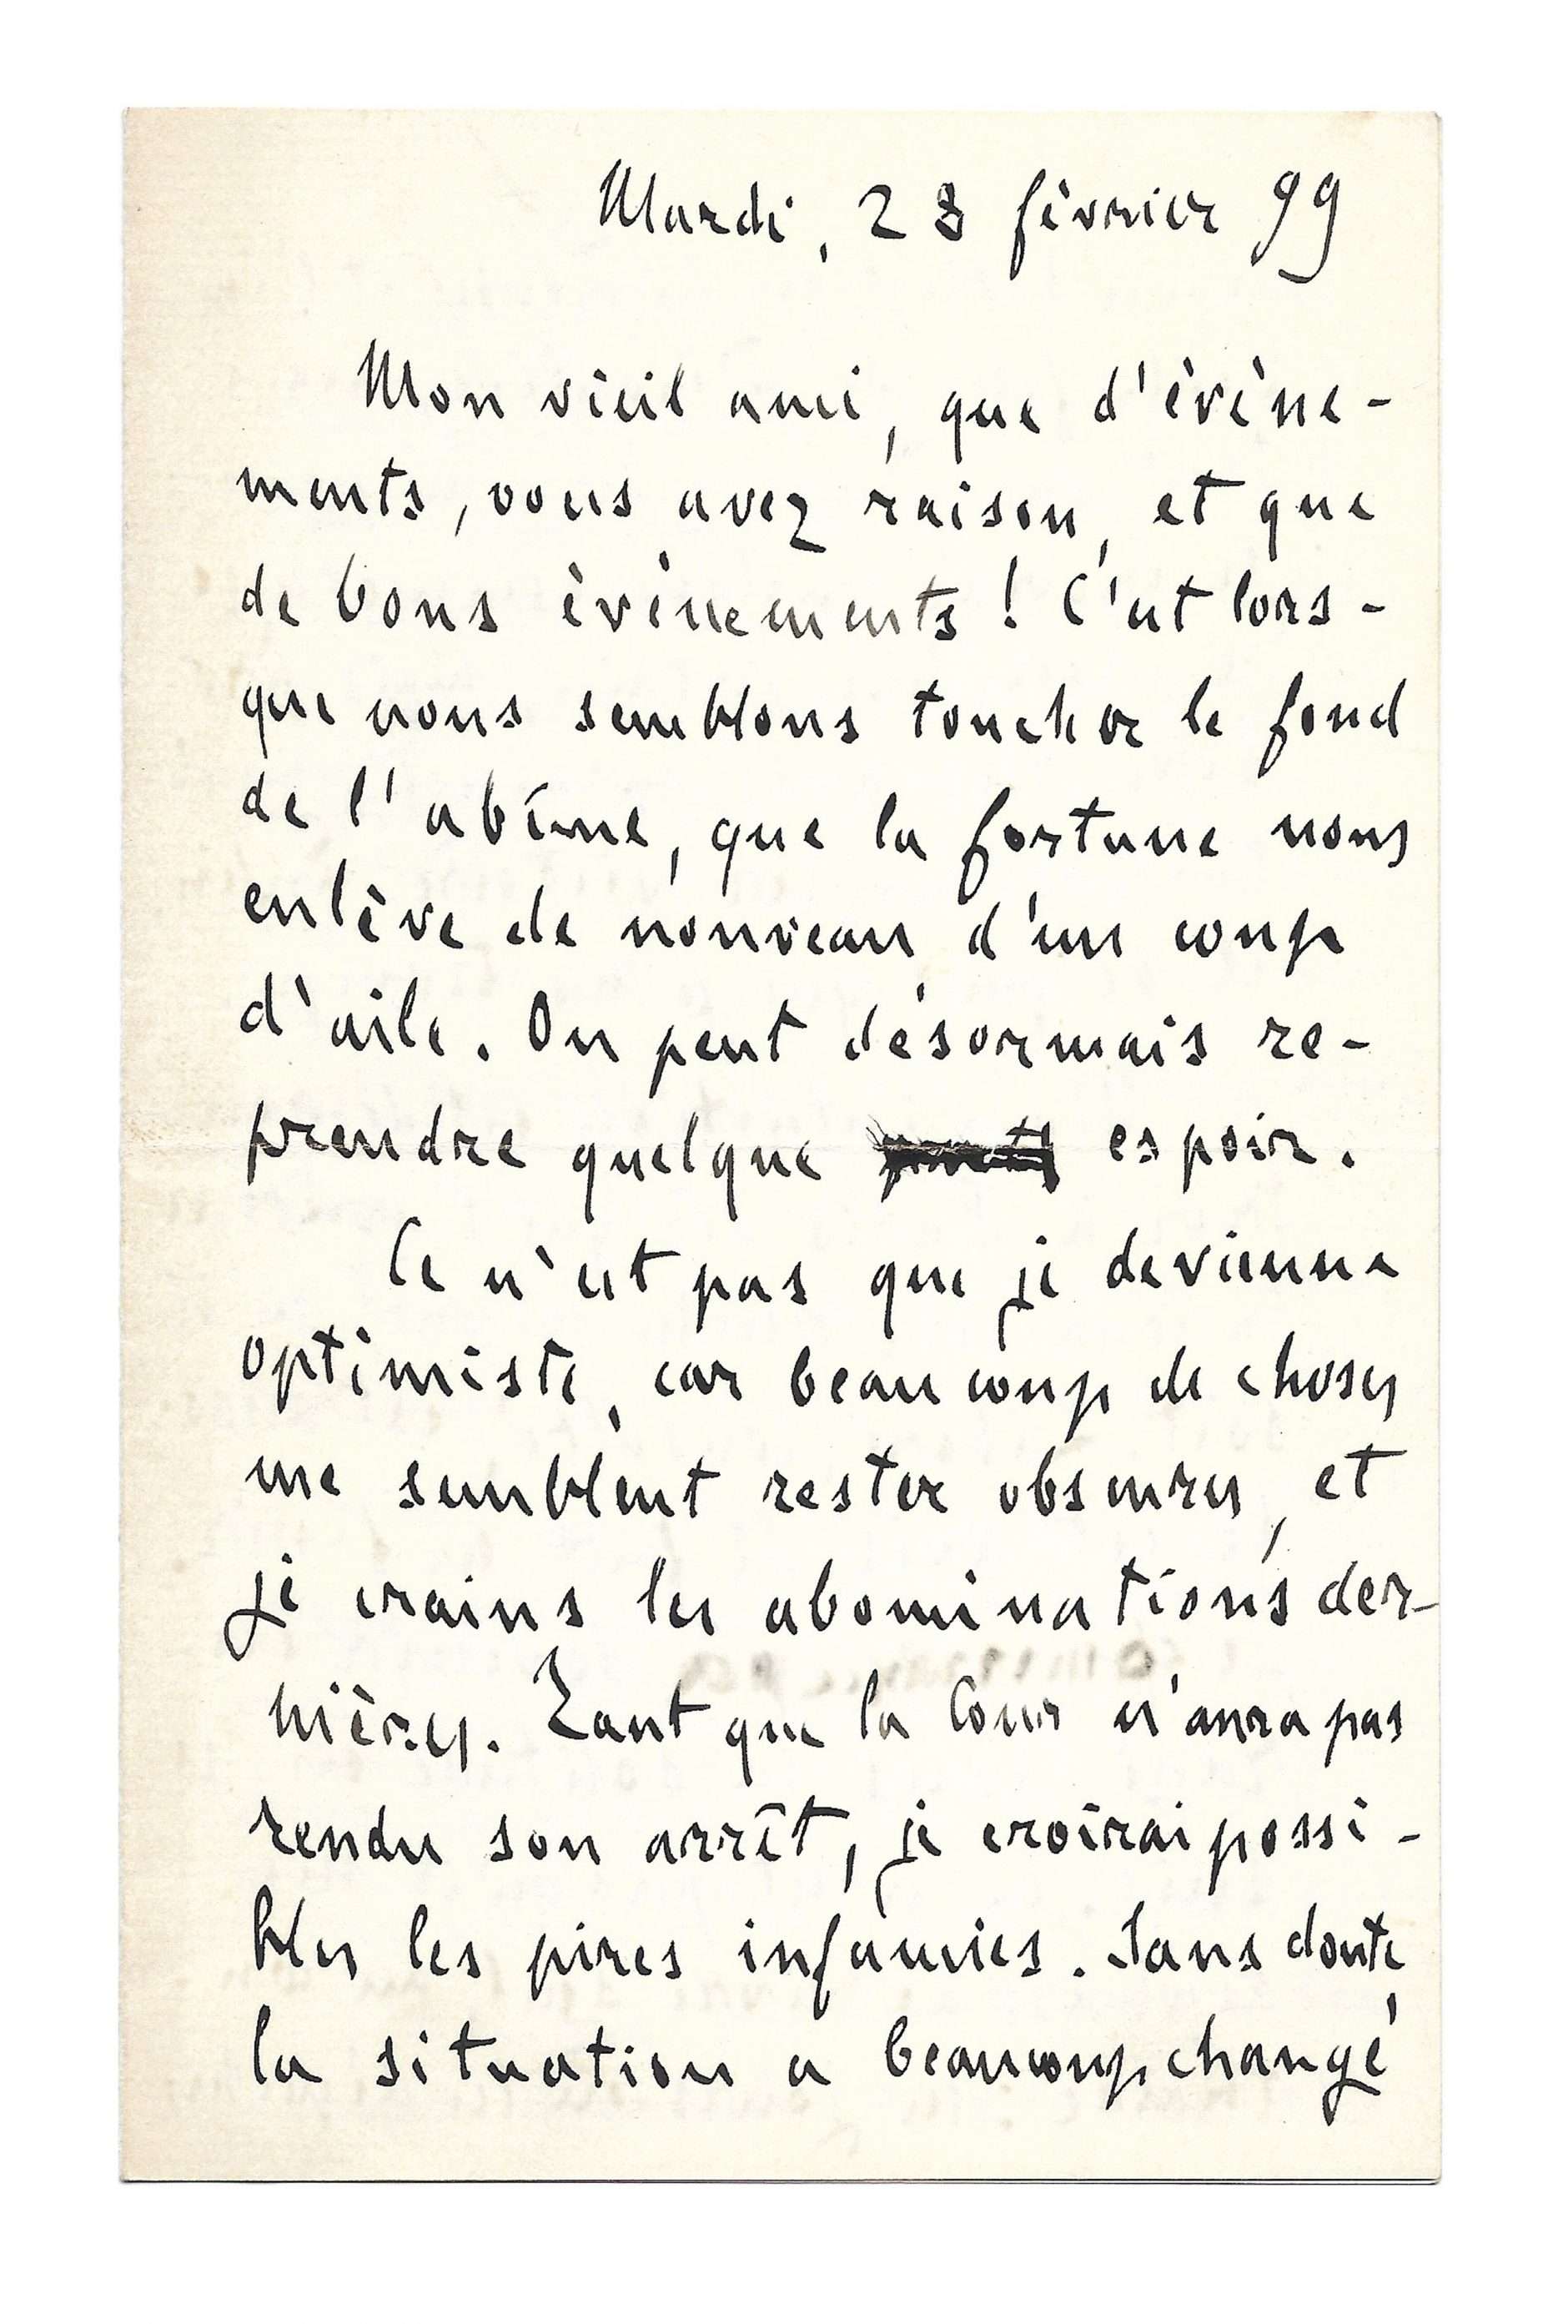 Mardi, 28 février 99
Mon vieil ami, que d'évène-
ments, vous avez raison, et que
de bons évènements ! C'est lors-
que nous semblons toucher le fond
de l'abîme, que la fortune nous
enlève de nouveau d'un coup
d'aile. On peut désormais re-
prendre quelque espoir.
Ce n'est pas que je devienne
optimiste, car beaucoup de choses
me semblent rester obscures, et
je crains les abominations der-
nières. Tant que la Cour n'aura pas
rendu son arrêt, je croirai possi-
bles les pires infamies. Sans doute,
la situation a beaucoup changé